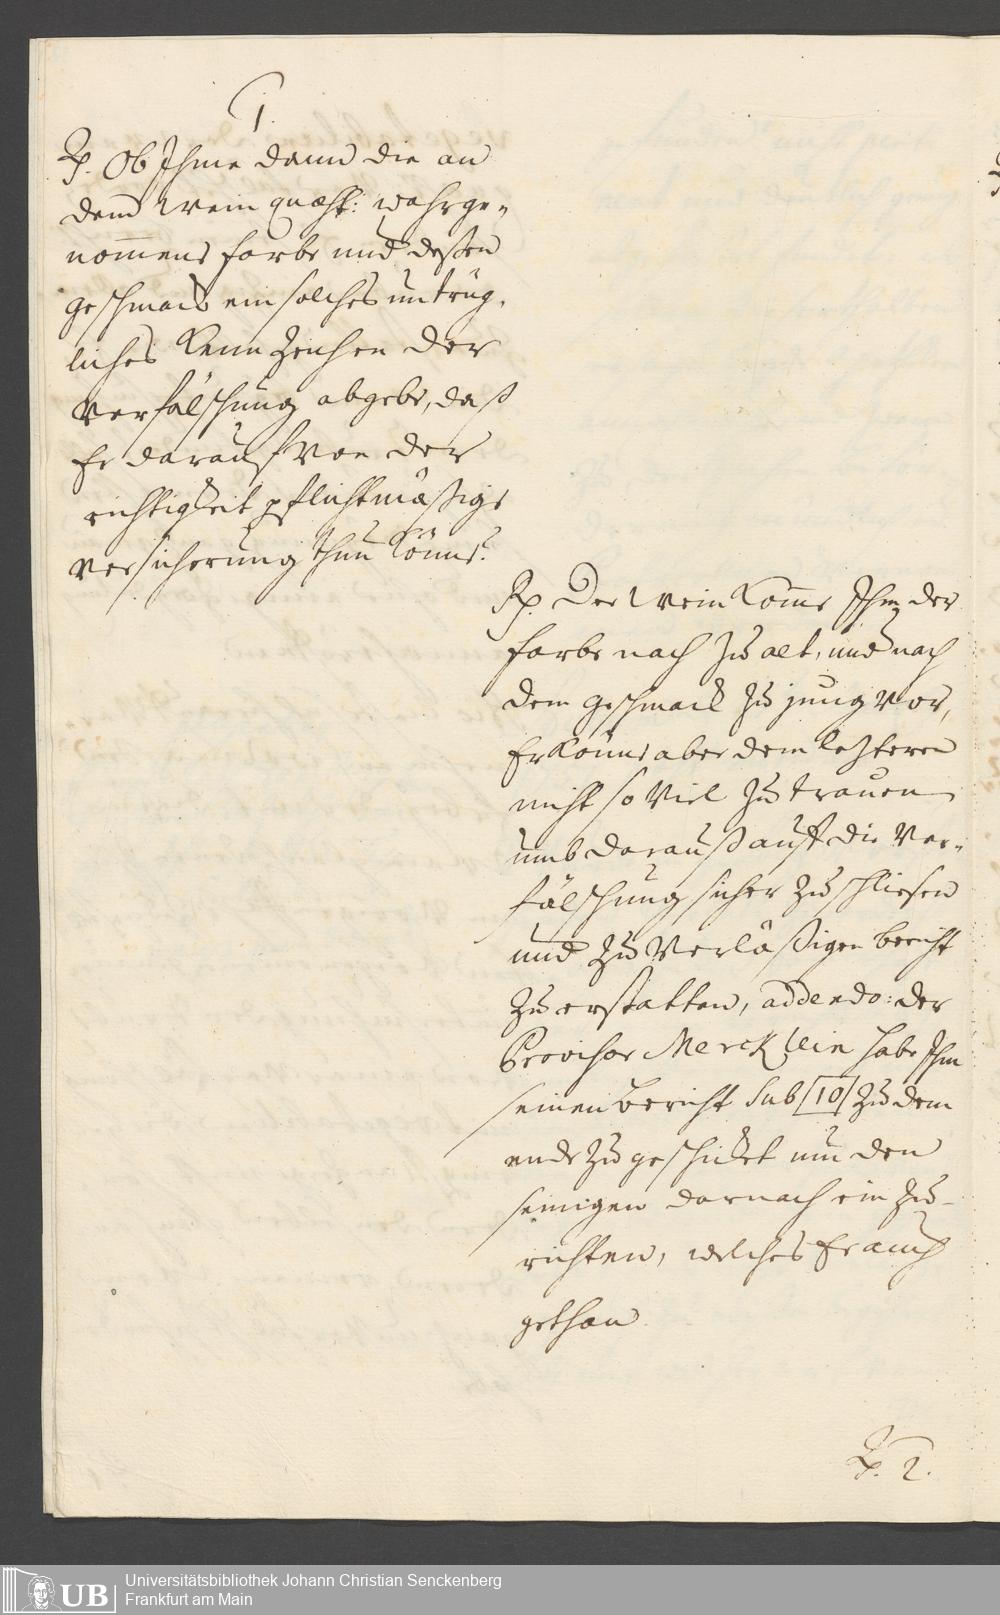 1.
Q. Ob Ihme dann die an
dem Wein quæst: wahrge-
nom̄ene farbe und deßen
geschmack ein solches untrüg-
liches Kenn Zeichen der
Verfälschung abgebe, daß
Er darauf von der
richtigkeit pflichtmäßige
versicherung thun könne?
Rp. Der Wein kom̄e Ihm der
farbe nach zu alt, und nach
dem geschmack zu jung vor,
Er könne aber dem letzteren
nicht so viel zu trauen
umb darauß auff die Ver-
fälschung sicher zu schliesen
und zu verläßigen bericht
zu erstatten, addendo: der
Provisor Mercklein habe Ihm
seinen bericht sub [10] zu dem
ende zu geschickt um den
seinigen darnach ein zu-
richten, welches Er auch
gethan
Q. 2.
UB
Universitätsbibliothek Johann Christian Senckenberg
Frankfurt am Main